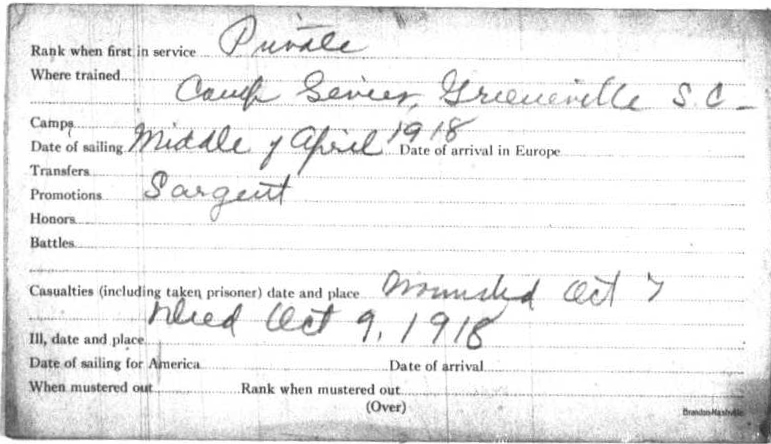 Rank when first in service Private
Where trained
Camp Sevier, Greeneville S.C.
Camps
Date of sailing Middle of April 1918 Date of arrival in Europe
Transfers
Promotions Sargent
Honors
Battles
Casualties (including taken prisoner) date and place Wounded Oct 7
Died Oct 9, 1918
Ill, date and place
Date of sailing for America Date of arrival
When mustered out Rank when mustered out
(Over)
Brandon-Nashville